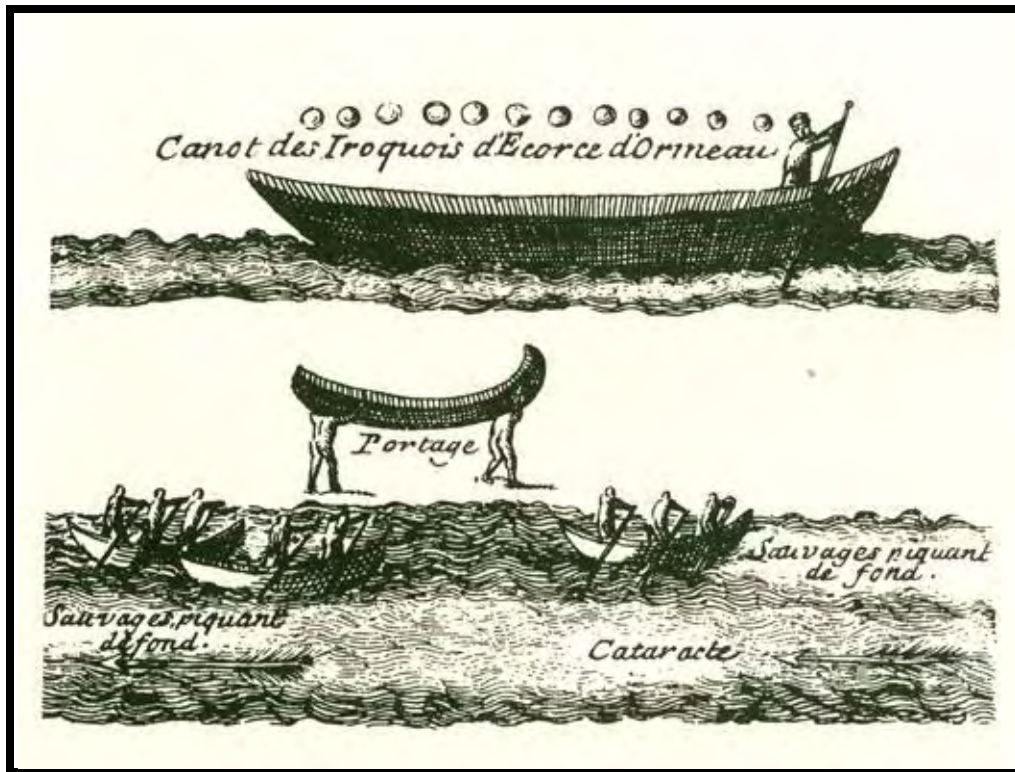 Canot des Iroquois d'Ecorce d'Ormeau
Portage
Sauvages piquant
de fond.
Sauvages, piquant
de fond.
Cataracte